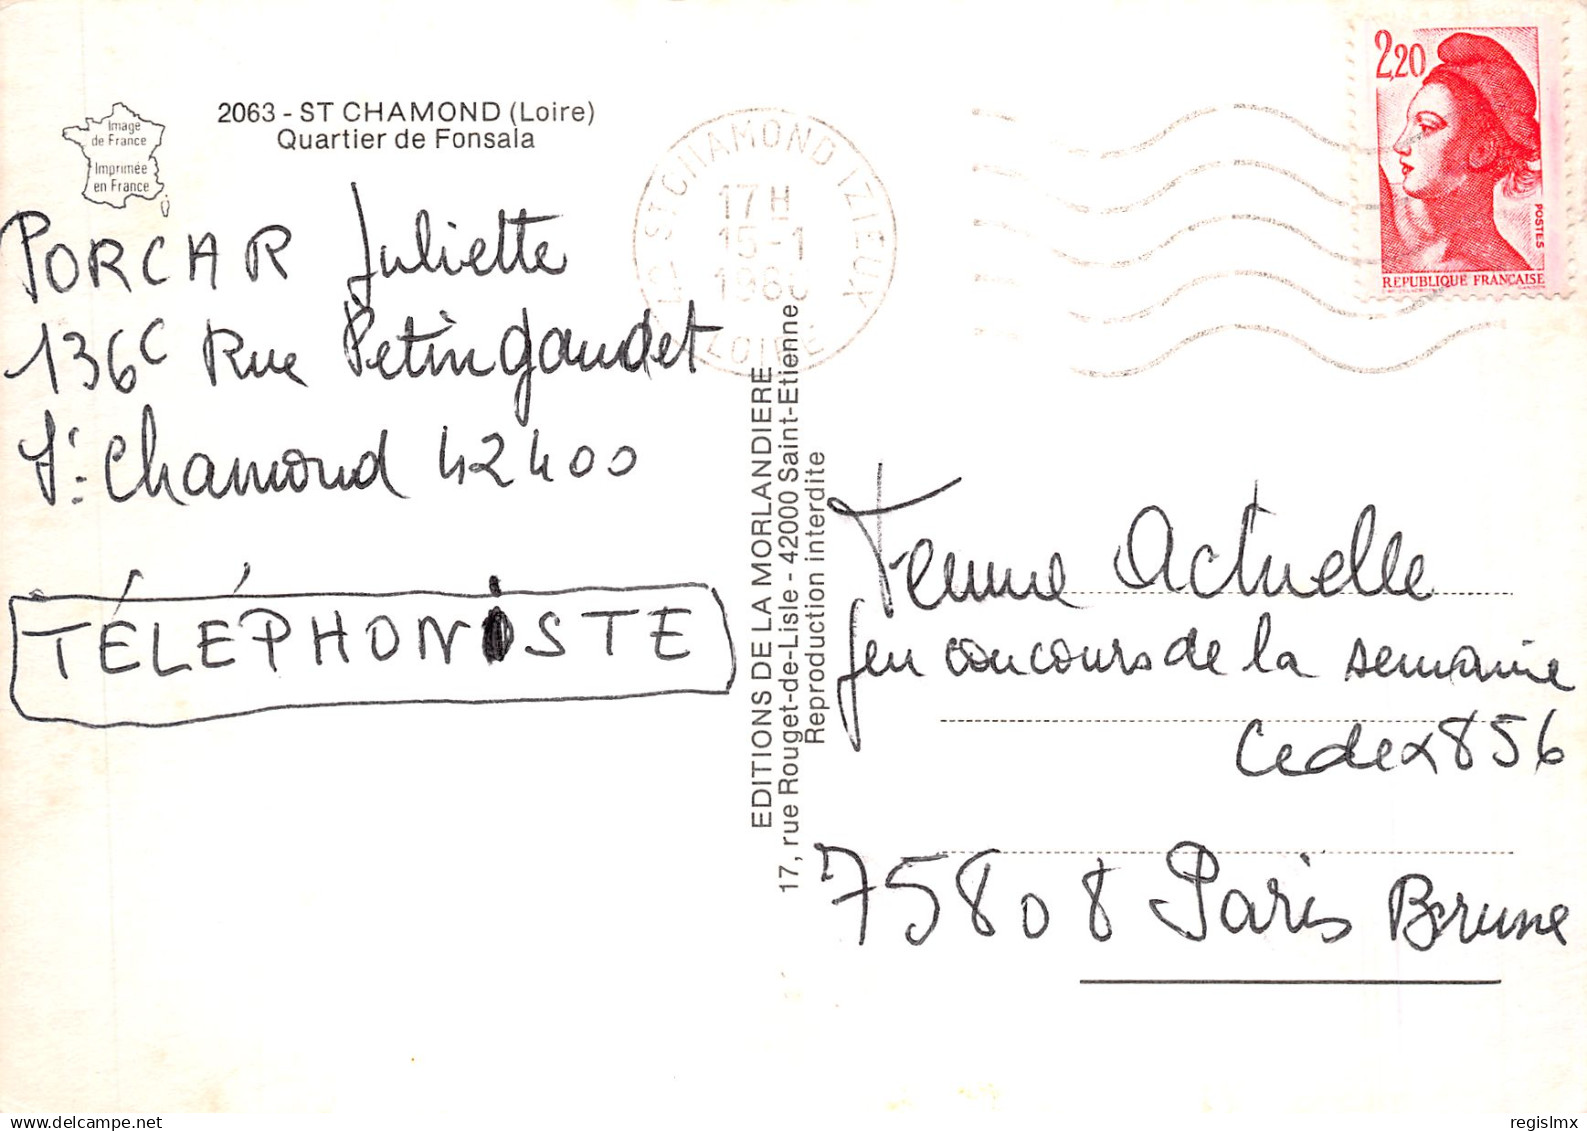 2063 - ST CHAMOND (Loire)
Quartier de Fonsala
Image
de France
Imprimée
en France
PORCAR Juliette
136C Rue Petin gaudet
St: Chamond 42400
TÉLÉPHONISTE
EDITIONS DE LA MORLANDIERE
17, rue Rouget-de-Lisle - 42000 Saint-Etienne
Reproduction interdite
ST CHAMOND IZIEUX
17 H
15-1
LOIRE
2,20
POSTES
REPUBLIQUE FRANÇAISE
Femme Actuelle
Jeu concours de la semaine
Cedex 856
75808 Paris Brune
regislmx